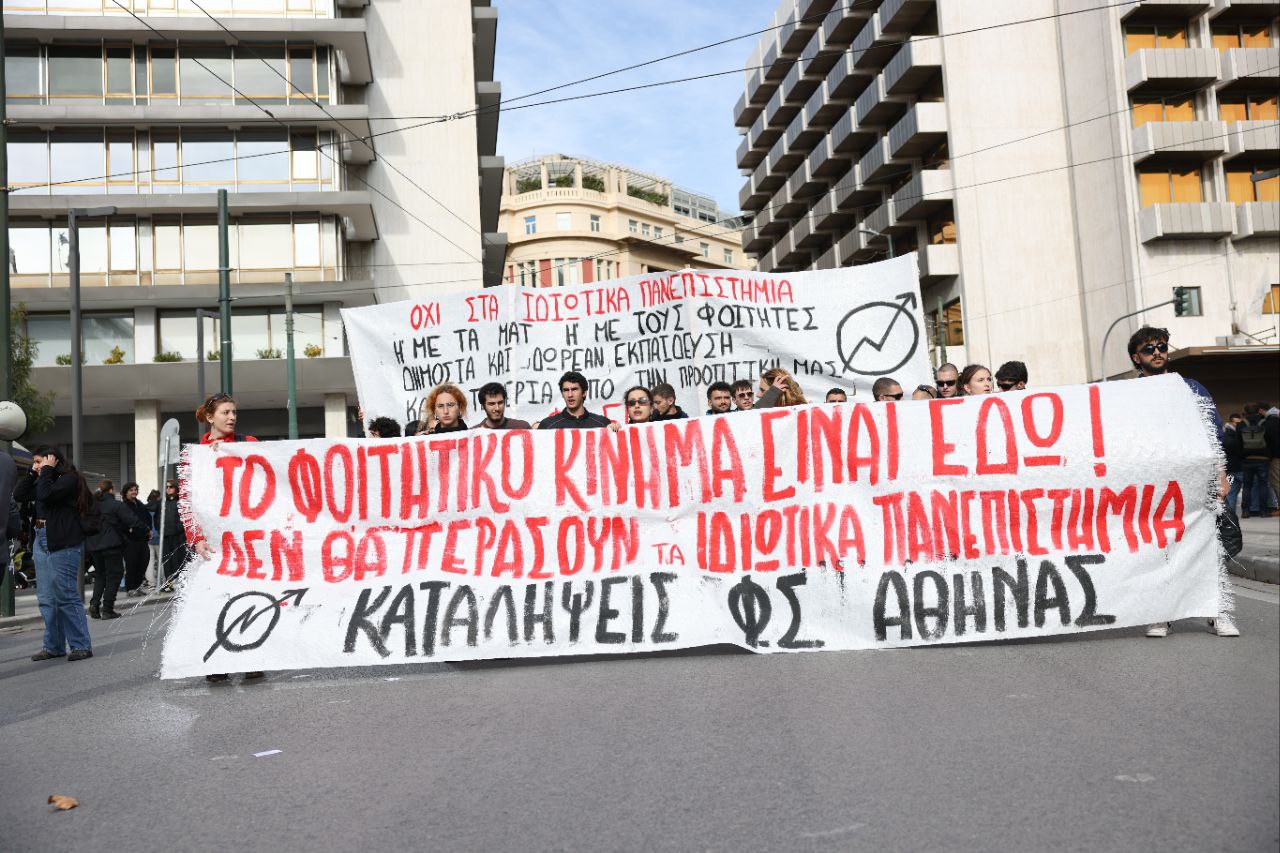 ΟΧΙ ΣΤΑ ΙΔΙΩΤΙΚΑ ΠΑΝΕΠΙΣΤΗΜΙΑ
Ή ΜΕ ΤΑ ΜΑΤ Ή ΜΕ ΤΟΥΣ ΦΟΙΤΗΤΕΣ
ΔΗΜΟΣΙΑ ΚΑΙ ΔΩΡΕΑΝ ΕΚΠΑΙΔΕΥΣΗ
ΤΗΝ ΠΡΟΟΠΤΙΚΗ ΜΑΣ
ΤΟ ΦΟΙΤΗΤΙΚΟ ΚΙΝΗΜΑ ΕΙΝΑΙ ΕΔΩ!
ΔΕΝ ΘΑ ΠΕΡΑΣΟΥΝ ΤΑ ΙΔΙΩΤΙΚΑ ΠΑΝΕΠΙΣΤΗΜΙΑ
ΚΑΤΑΛΗΨΕΙΣ ΦΣ ΑΘΗΝΑΣ